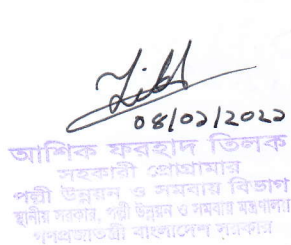 08/02/2022
আশিক ফরহাদ তিলক
সহকারী প্রোগ্রামার
পল্লী উন্নয়ন ও সমবায় বিভাগ
স্থানীয় সরকার, পল্লী উন্নয়ন ও সমবায় মন্ত্রণালয়
গণপ্রজাতন্ত্রী বাংলাদেশ সরকার